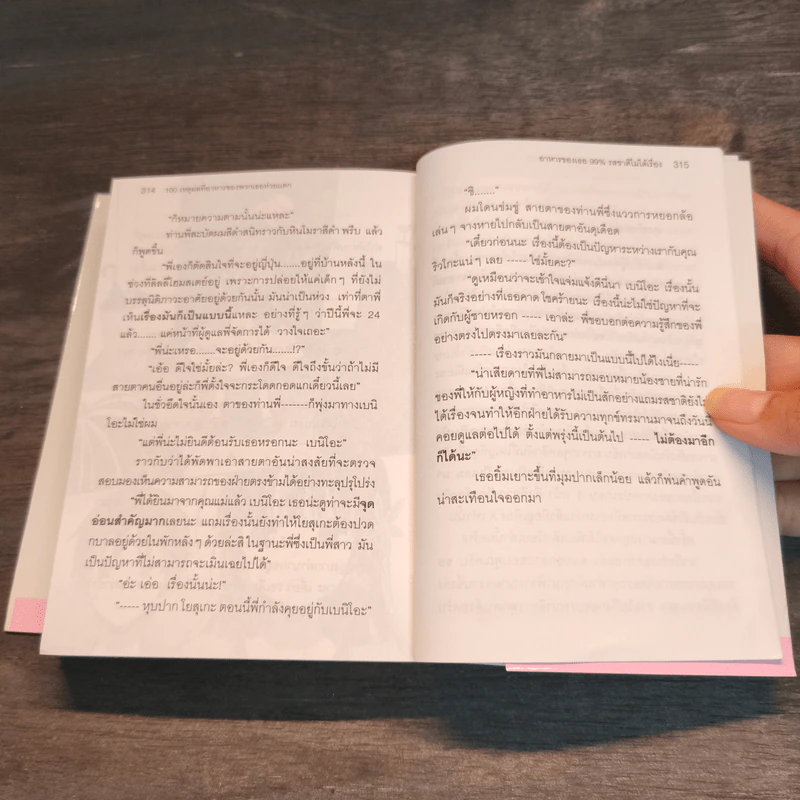 314 100 เหตุผลที่อาหารของพวกเธอห่วยแตก
"ก็หมายความตามนั้นน่ะแหละ"
ท่านพี่สะบัดผมสีดำสนิทราวกับหินโมราสีดำ พรึบ แล้ว
ก็พูดขึ้น
"พี่เองก็ตัดสินใจที่จะอยู่ญี่ปุ่น.......อยู่ที่บ้านหลังนี้ ใน
ช่วงที่ลิลลี่โฮมสเตย์อยู่ เพราะการปล่อยให้แค่เด็กๆ ที่ยังไม่
บรรลุนิติภาวะอาศัยอยู่ด้วยกันนั้น มันน่าเป็นห่วง เท่าที่ตาพี่
เห็นเรื่องมันก็เป็นแบบนี้แหละ อย่างที่รู้ๆ ว่าปีนี้พี่จะ 24
แล้ว....... แค่หน้าที่ผู้ดูแลพี่จัดการได้ วางใจเถอะ"
"พี่น่ะเหรอ.......จะอยู่ด้วยกัน.......!?"
"เอ้อ ดีใจใช่มั้ยล่ะ? พี่เองก็ดีใจ ดีใจถึงขั้นว่าถ้าไม่มี
สายตาคนอื่นอยู่ล่ะก็พี่ตั้งใจจะกระโดดกอดแกเดี๋ยวนี้เลย"
ในชั่วอึดใจนั้นเอง ตาของท่านพี่-------ก็พุ่งมาทางเบนิ
โอะไม่ใช่ผม
"แต่พี่น่ะไม่ยินดีต้อนรับเธอหรอกนะ เบนิโอะ"
ราวกับว่าได้พัดพาเอาสายตาอันน่าสงสัยที่จะตรวจ
สอบมองเห็นความสามารถของฝ่ายตรงข้ามได้อย่างทะลุปรุโปร่ง
"พี่ได้ยินมาจากคุณแม่แล้ว เบนิโอะ เธอน่ะดูท่าจะมีจุด
อ่อนสำคัญมากเลยนะ แถมเรื่องนั้นยังทำให้โยสุเกะต้องปวด
กบาลอยู่ด้วยในพักหลังๆ ด้วยล่ะสิ ในฐานะพี่ซึ่งเป็นพี่สาว มัน
เป็นปัญหาที่ไม่สามารถจะเมินเฉยไปได้"
"อ่ะ เอ่อ เรื่องนั้นน่ะ!"
"----- หุบปาก โยสุเกะ ตอนนี้พี่กำลังคุยอยู่กับเบนิโอะ"
อาหารของเธอ 99% รสชาติไม่ได้เรื่อง 315
"ชิ......."
ผมโดนข่มขู่ สายตาของท่านพี่ซึ่งแววการหยอกล้อ
เล่นๆ จางหายไปกลับเป็นสายตาอันดุเดือด
"เดี๋ยวก่อนนะ เรื่องนี้ต้องเป็นปัญหาระหว่างเรากับคุณ
ริวโกะแน่ๆ เลย ----- ใช่มั้ยคะ?"
"ดูเหมือนว่าจะเข้าใจแจ่มแจ้งดีนี่นา เบนิโอะ เรื่องนั้น
มันก็จริงอย่างที่เธอคาด โชคร้ายนะ เรื่องนี้น่ะไม่ใช่ปัญหาที่จะ
เกิดกับผู้ชายหรอก ----- เอาล่ะ พี่ขอบอกต่อความรู้สึกของพี่
อย่างตรงไปตรงมาเลยละกัน"
----- เรื่องราวมันกลายมาเป็นแบบนี้ไปได้ไงเนี่ย-----
"น่าเสียดายที่พี่ไม่สามารถมอบหมายน้องชายที่น่ารัก
ของพี่ให้กับผู้หญิงที่ทำอาหารไม่เป็นสักอย่างแถมรสชาติยังไม่
ได้เรื่องจนทำให้อีกฝ่ายได้รับความทุกข์ทรมานมาจนถึงวันนี้
คอยดูแลต่อไปได้ ตั้งแต่พรุ่งนี้เป็นต้นไป ----- ไม่ต้องมาอีก
ก็ได้นะ"
เธอยิ้มเยาะขึ้นที่มุมปากเล็กน้อย แล้วก็พ่นคำพูดอัน
น่าสะเทือนใจออกมา